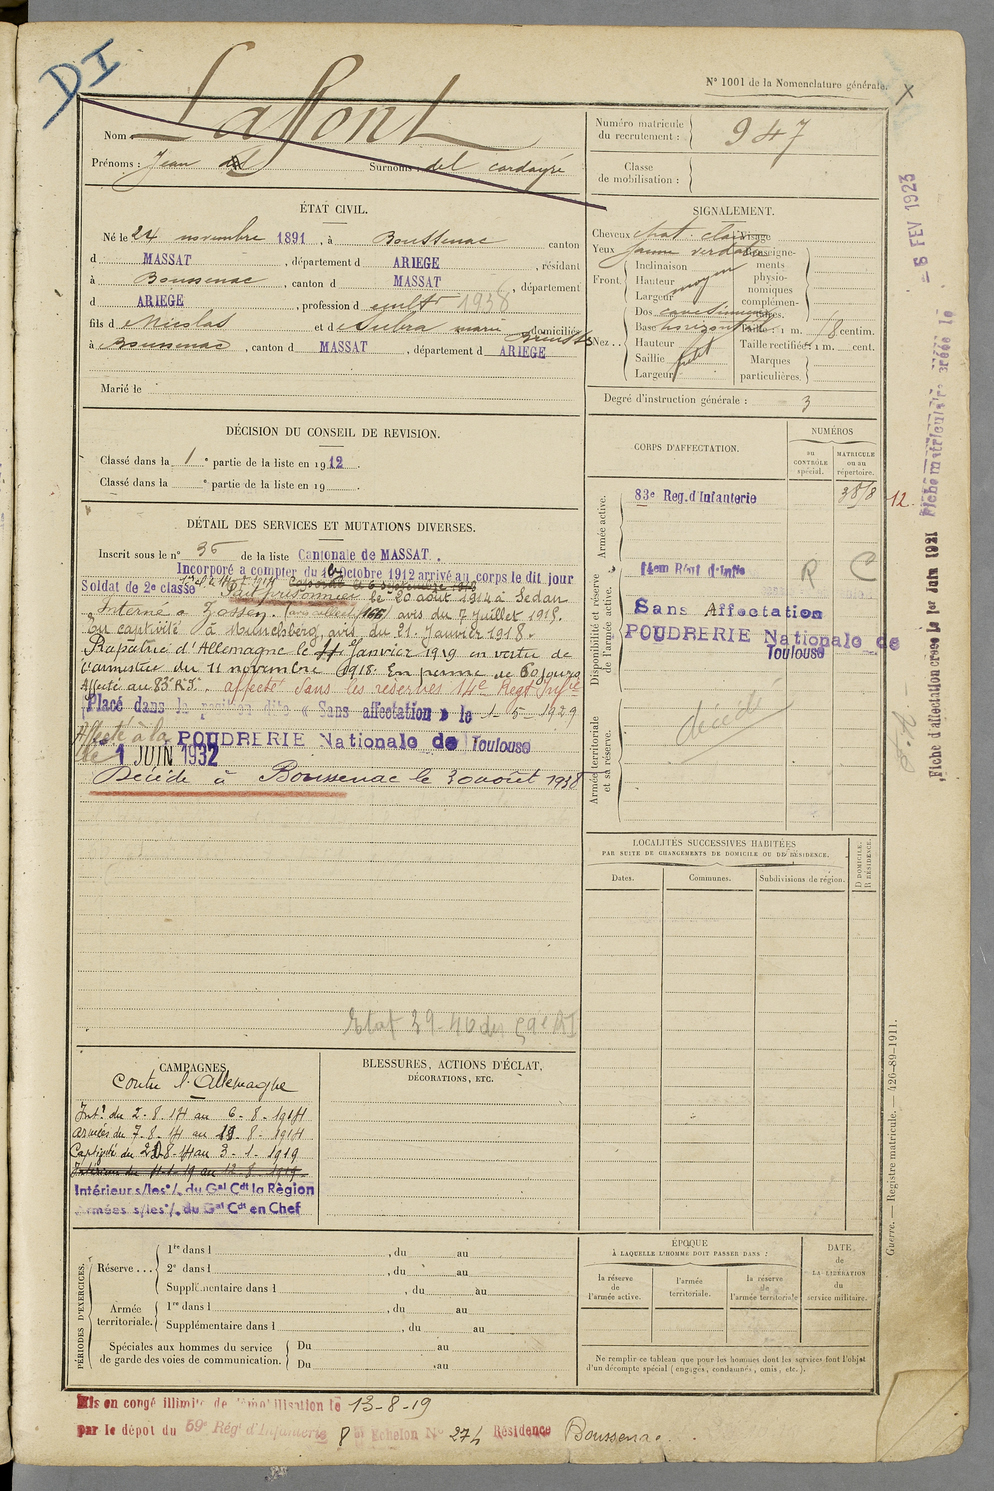 DI
N° 1001 de la Nomenclature générale.
X
Nom : Laffont
Prénoms : Jean Surnoms : del cardayré
Numéro matricule du recrutement : 947
Classe de mobilisation :
ÉTAT CIVIL.
Né le 24 novembre 1891, à Boussenac canton
d MASSAT, département d ARIEGE, résidant
à Boussenac, canton d MASSAT, département
d ARIEGE, profession d cult 1938
fils d Nicolas et d Subra marie domiciliés
à Boussenac, canton d MASSAT, département d ARIEGE
Marié le
SIGNALEMENT.
Cheveux chat. clair
Yeux jaune verdatre
Front. Inclinaison
Hauteur moyen
Largeur
Nez. Dos
Base horizontal
Hauteur
Saillie petit
Largeur
Visage
Renseignements physionomiques complémentaires.
Taille : 1 m. 78 centim.
Taille rectifiée : 1 m. cent.
Marques particulières.
Degré d'instruction générale : 3
DÉCISION DU CONSEIL DE REVISION.
Classé dans la 1e partie de la liste en 1912.
Classé dans la e partie de la liste en 19
CORPS D'AFFECTATION.
NUMÉROS
au CONTRÔLE spécial.
MATRICULE ou au répertoire.
Armée active.
83e Reg.d'Infanterie
3818
12.
Disponibilité et réserve de l'armée active.
14em Rént d'Inftie
R
Sans Affectation
POUDRERIE Nationale de
Toulouse
Armée territoriale et sa réserve.
décédé
DÉTAIL DES SERVICES ET MUTATIONS DIVERSES.
Inscrit sous le n° 36 de la liste Cantonale de MASSAT.
Incorporé a compter du 1er Octobre 1912 arrivé au corps le dit jour
Soldat de 2e classe
Fait prisonnier le 20 août 1914 à Sedan
Interné à Zossen. avis du 7 juillet 1915.
En captivité à Munchsberg, avis du 21. Janvier 1918.
Rapatrié d'Allemagne le 11 Janvier 1919 en vertu de
l'armistice du 11 novembre 1918. En perme de 60 jours
Affecté au 83e R.I. affecté dans les réserves 14e Regt Infie
Placé dans la position dite « Sans affectation » le 1-5-1929
Affecté à la POUDRERIE Nationale de Toulouse
le 1 JUIN 1932
Décédé à Boussenac le 30 aout 1938
Etat 39-40 du 59e RI
LOCALITÉS SUCCESSIVES HABITÉES
PAR SUITE DE CHANGEMENTS DE DOMICILE OU DE RÉSIDENCE.
Dates.
Communes.
Subdivisions de région.
D DOMICILE.
R RÉSIDENCE.
CAMPAGNES
Contre l'Allemagne
Intr du 2-8-14 au 6-8-1914
Armées du 7-8-14 au 19-8-1914
Captivité du 20-8-14 au 3-1-1919
Intérieur du 11-1-19 au 12-8-1919
Intérieur s/les o/. du Gal Cdt la Région
Armées s/les o/. du Gal Cdt en Chef
BLESSURES, ACTIONS D'ÉCLAT,
DÉCORATIONS, ETC.
PÉRIODES D'EXERCICES.
Réserve ...
1re dans l , du au
2e dans l , du au
Supplémentaire dans l , du au
Armée territoriale.
1re dans l , du au
Supplémentaire dans l , du au
Spéciales aux hommes du service de garde des voies de communication.
Du au
Du au
ÉPOQUE
À LAQUELLE L'HOMME DOIT PASSER DANS :
la réserve de l'armée active.
l'armée territoriale.
la réserve de l'armée territoriale
DATE de LA LIBÉRATION du service militaire.
Ne remplir ce tableau que pour les hommes dont les services font l'objet
d'un décompte spécial (engagés, condamnés, omis, etc.).
Mis en congé illimité de démobilisation le 13-8-19
par le dépot du 59e Rég' d'Infanterie 8 Echelon N° 274 Résidence Boussenac.
Guerre. — Registre matricule. — 426-89-1911.
- 5 FEV 1923
Fiche matriculaire créée le
Fiche d'affectation créée le 1er Juin 1921